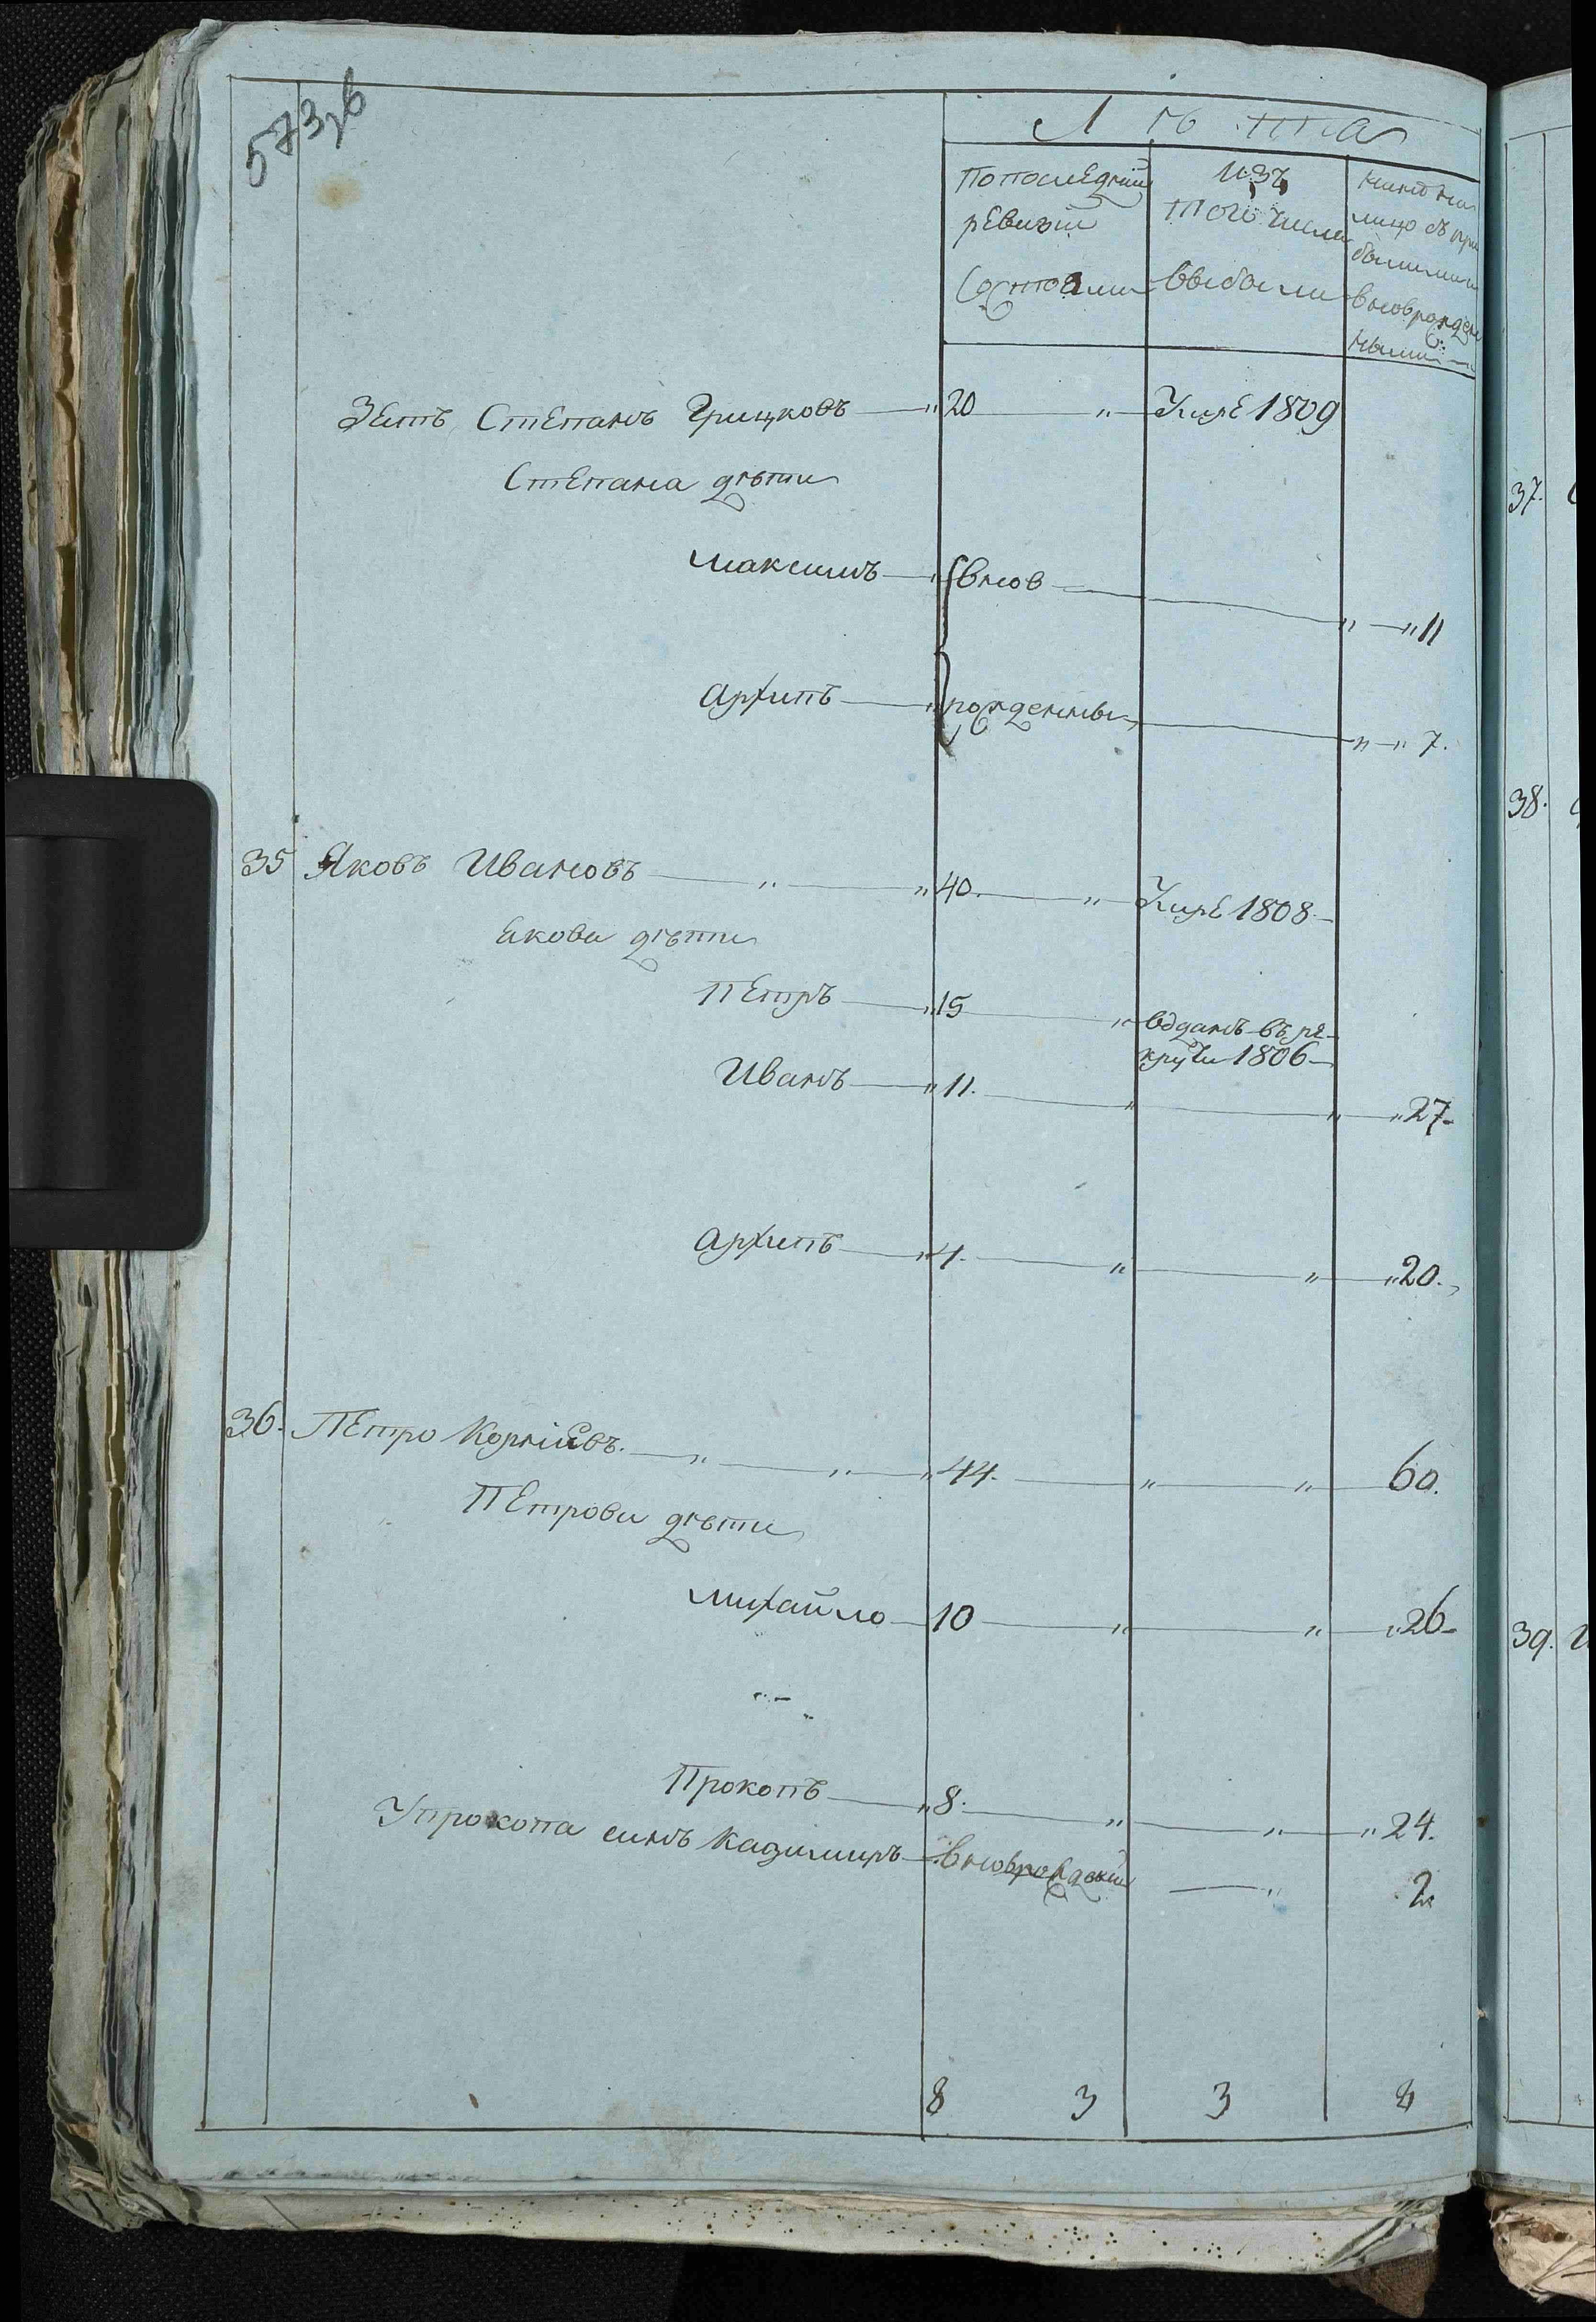 573,б
Лѣта
По последний
ревизии
Состоали
изъ
того числа
выбыли
нынѣ на
лицо съ при
былими и
вновь рожден
ными
Зять Степанъ Грицковъ 20 Умре 1809
Степана дѣти
Максимъ внов 11
Архипъ рожденны 7.
35 Яковъ Ивановъ 40. Умре 1808
Якова дѣти
Петръ 15 вданъ въ ре-
круты 1806
Иванъ 11. 27
Архипъ 4. 20.
36. Петро Корнiевъ. 44. 60.
Петрови дѣти
Михайло 10 26
Прокопъ 8. 24.
У прокопа синъ Кадимиръ вновь рожденй 2
8 3 3 8
37.
38.
39.